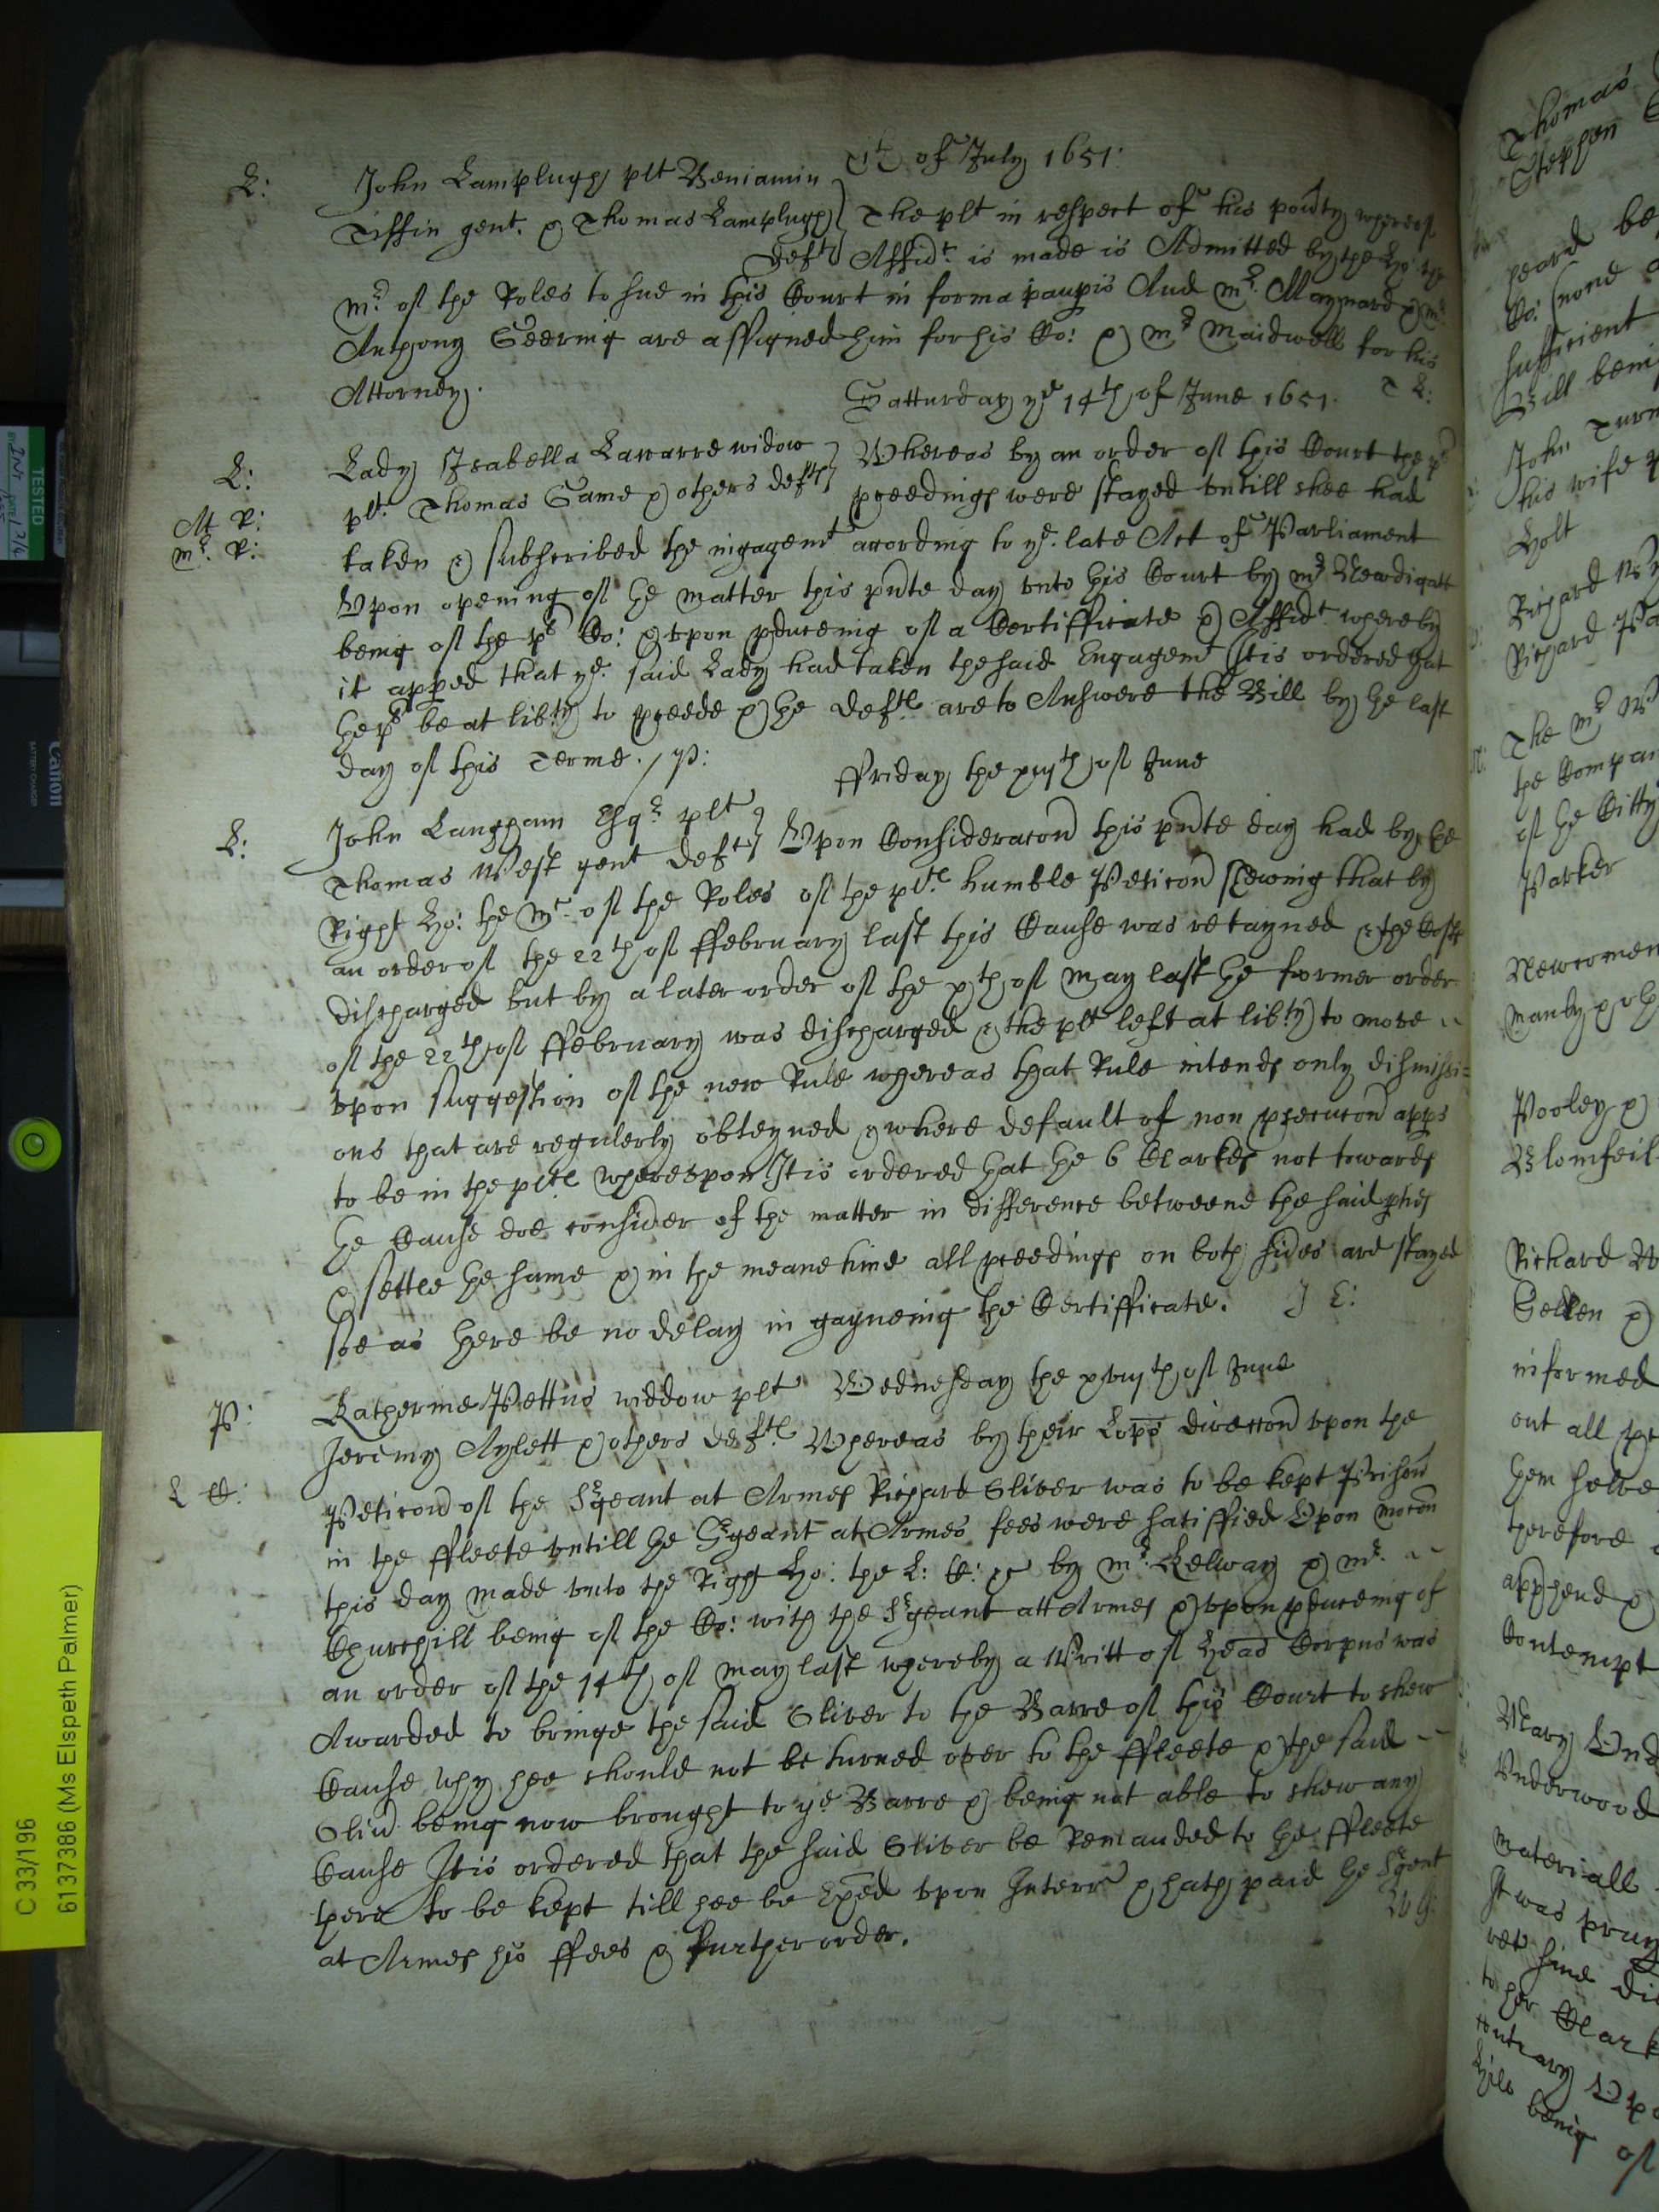 of July 1651:
L: John Lamplugh plt Beniamin
Tiffin gent. & Thomas Lamplugh } The plt in respect of his pouty whereof
Deftes Affidt. is made is Admitted by the Ho: the
Mr. of the Roles to sue in this Court in forma paupis And mr. Maynard & mr.
Anthony Geering are assigned him for his Co: & mr Maidwell for his
Attorney.
Satturday ye 14th of June 1651. T L:
L: Lady Isabella Lawarre widow } Whereas by an order of this Court the ps
plt. Thomas Game & others deftes } pceedings were stayed vntill shee had
M R:
mr. R: taken & subscribed the ingagemt according to ye. late Act of Parliament
Vpon opening of the matter this pnte day vnto this Court by mr Newdigatt
being of the ps Co: & vpon pduceing of a Certifficate & Affidt. whereby
it apped that ye. said Lady had taken the said Engagemt It is ordered that
the ps be at libty to pceede & the Deftes are to Answere the Bill by the last
day of this Terme. / P:
ffriday the xiijth of June
L: John Langham Esqr plt }
Thomas West gent Deft } Vpon Consideracon this pnte day had by the
Right Ho: the Mr. of the Roles of the pltes humble Peticon shewing that by
an order of the 22th of ffebruary last this Cause was retayned & the Costs
discharged but by a later order of the xth of May last the former order
of the 22th of ffebruary was discharged & the plt left at libty to move
vpon suggestion of the new Rule whereas that Rule intends only dismissi=
ons that are regulerly obteyned & where default of non psecucon apps
to be in the pltes wherevpon It is ordered that the 6 Clarkes not towards
the Cause doe consider of the matter in difference betweene the said pties
& settle the same & in the meane time all pceedings on both sides are stayed
soe as there be no delay in gayneing the Certifficate. J E:
P: Katherine Pettus widdow plt Wednesday the xviijth of June
Jeremy Aylett & others deftes Whereas by their Lopps direccon vpon the
L C: Peticon of the Sergeant at Armes Richard Sliver was to be kept Prisoner
in the ffleete vntill the Sergeant at Armes fees were satisffied Vpon mocon
this day made vnto the Right Ho: the L: C: by mr. Kelway & mr.
Churchill being of the Co: with the Sergeant att Armes & vpon pduceing of
an order of the 14th of May last whereby a Writt of Heas Corpus was
Awarded to bringe the said Sliver to the Barre of this Court to shew
Cause why hee should not be turned over to the ffleete & the said
Sliu being now brought to ye Barre & being not able to shew any
Cause It is ordered that the said Sliver be Remanded to the ffleete
there to be kept till hee be Exed vpon Interr & hath paid the Sergent
at Armes his ffees & further order. W G:
C 33/196
6137386 (Ms Elspeth Palmer)
TESTED
Canon
BATTERY CHARGER
Thomas
Stephen
heard
Sufficient
Bill being
John Turn
his wife
Holt
Richard
Richard
The mr
the Compan
of the Citty
Parker
Newcomen
Manby & oth
Pooley &
Blomfeil
Richard
informed
out all
them selve
therefore
apphend &
Contempt
Mary Und
Vnderwood
materiall
It was pray
to her Clark
contrary
being of